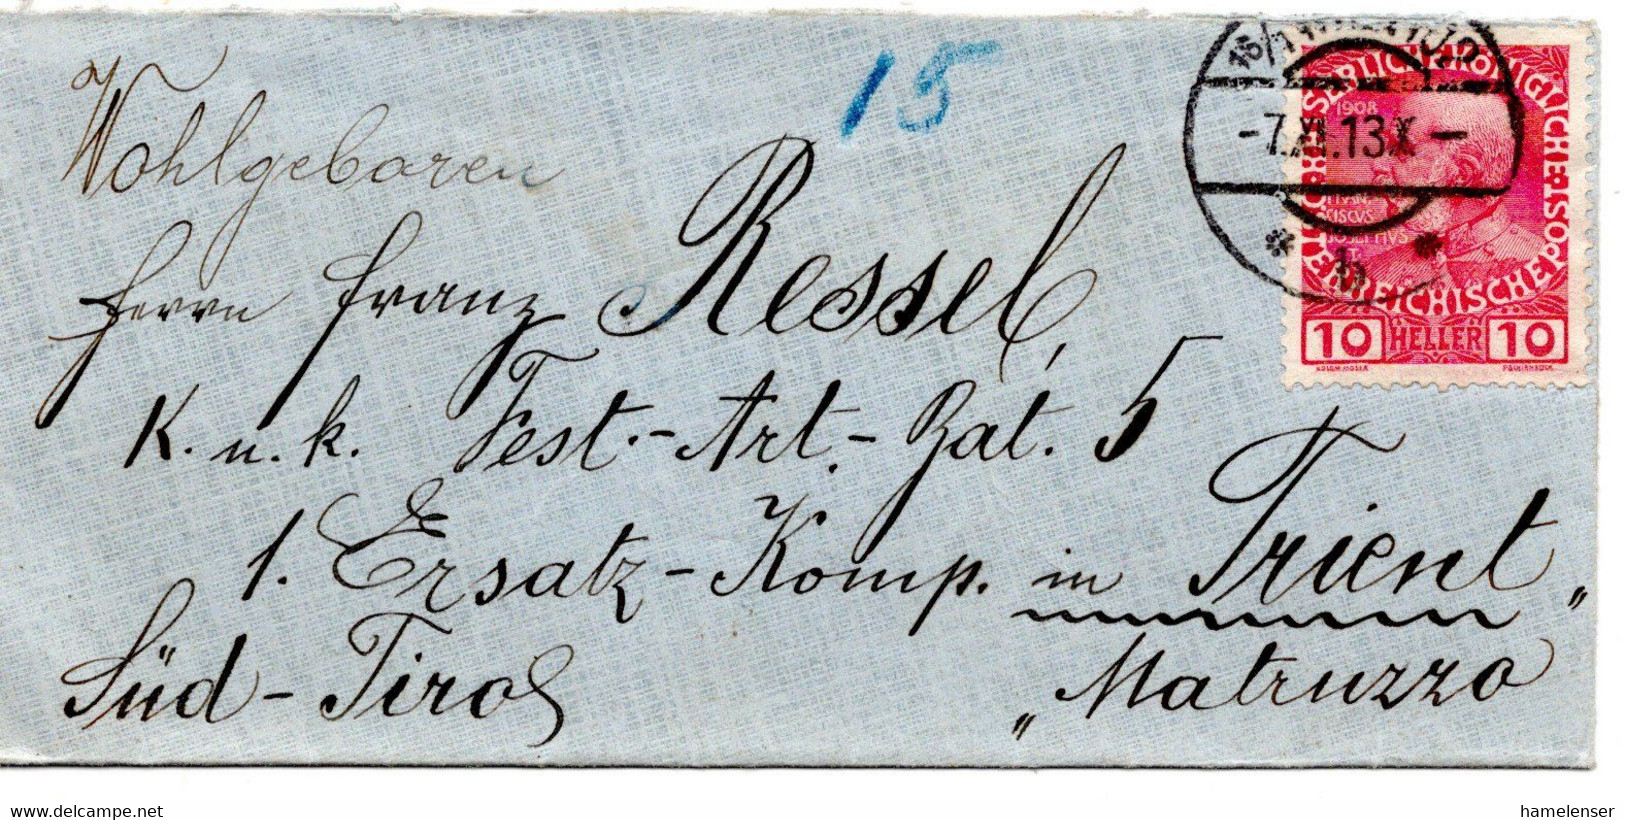 15
Wohlgeboren
Herrn Franz Ressel,
K. u. k. Fest.-Art.-Bat. 5
1. Ersatz-Komp. in Trient
Süd-Tirol
„Matruzzo"
16/1 WIEN
-7.XI.13.X-
* b *
KAISERLICHE KÖNIGLICHE ÖSTERREICHISCHE POST
1908
FRAN
CISCUS
JOSEPHUS
10 HELLER 10
KOLOM. MOSER
F. SCHIRNBÖCK
www.delcampe.net
hamelenser